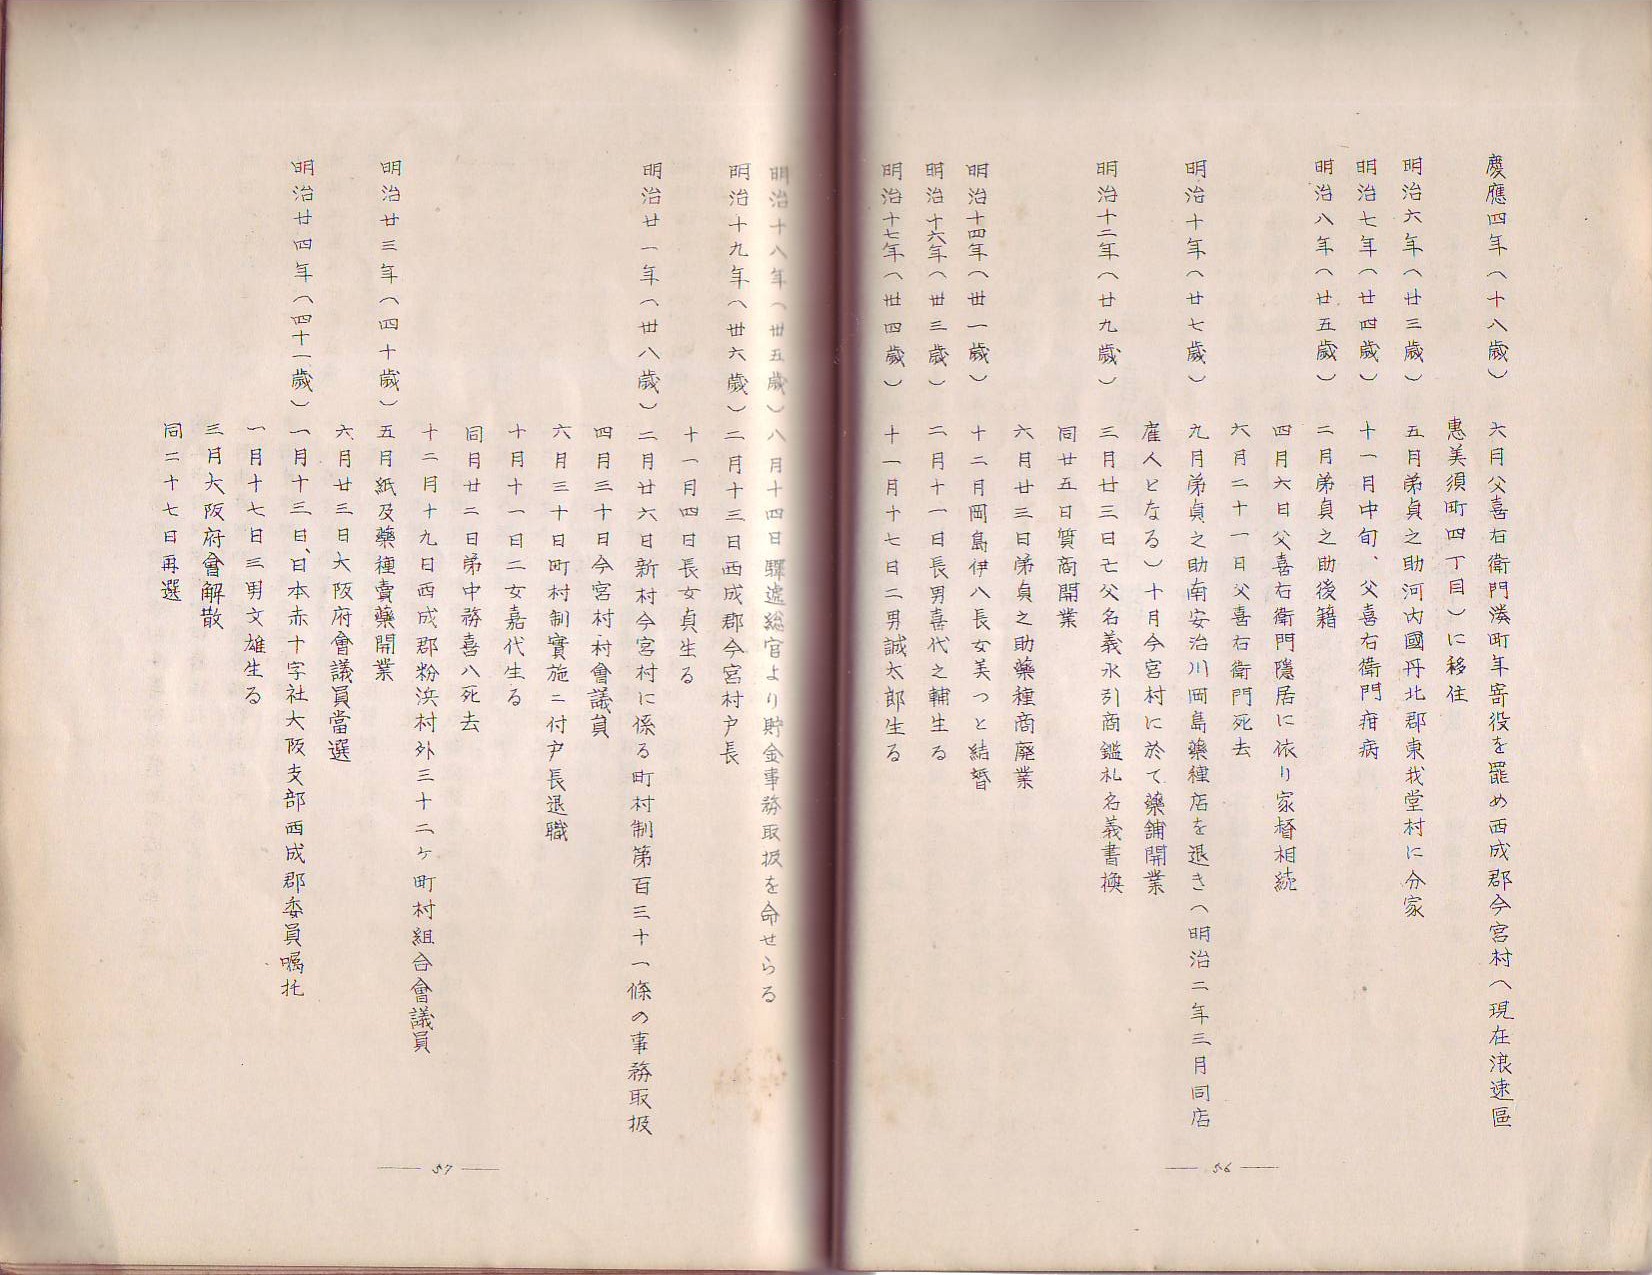 慶應四年(十八歲) 六月父喜右衛門湊町年寄役を罷め西成郡今宮村(現在浪速區
惠美須町四丁目)に移住
明治六年(廿三歲) 五月弟貞之助河内國丹北郡東我堂村に分家
明治七年(廿四歲) 十一月中旬、父喜右衛門疳病
明治八年(廿五歲) 二月弟貞之助復籍
四月六日父喜右衛門隱居に依り家督相続
六月二十一日父喜右衛門死去
明治十年(廿七歲) 九月弟貞之助南安治川岡島藥種店を退き(明治二年三月同店
雇人となる)十月今宮村に於て藥鋪開業
明治十二年(廿九歲) 三月廿三日亡父名義水引商鑑札名義書換
同廿五日質商開業
六月廿三日弟貞之助藥種商廃業
明治十四年(丗一歲) 十二月岡島伊八長女美つと結婚
明治十六年(丗三歲) 二月十一日長男喜代之輔生る
明治十七年(丗四歲) 十一月十七日二男誠太郎生る
— 56 —
明治十八年(丗五歲) 八月十四日驛逓総官より貯金事務取扱を命せらる
明治十九年(丗六歲) 二月十三日西成郡今宮村戸長
十一月四日長女貞生る
明治廿一年(丗八歲) 二月廿六日新村今宮村に係る町村制第百三十一條の事務取扱
四月三十日今宮村村會議員
六月三十日町村制實施ニ付戸長退職
十月十一日二女嘉代生る
同月廿二日弟中務喜八死去
十二月十九日西成郡粉浜村外三十二ヶ町村組合會議員
明治廿三年(四十歲) 五月紙及藥種賣藥開業
六月廿三日大阪府會議員當選
明治廿四年(四十一歲) 一月十三日、日本赤十字社大阪支部西成郡委員囑托
一月十七日三男文雄生る
三月大阪府會解散
同二十七日再選
— 57 —